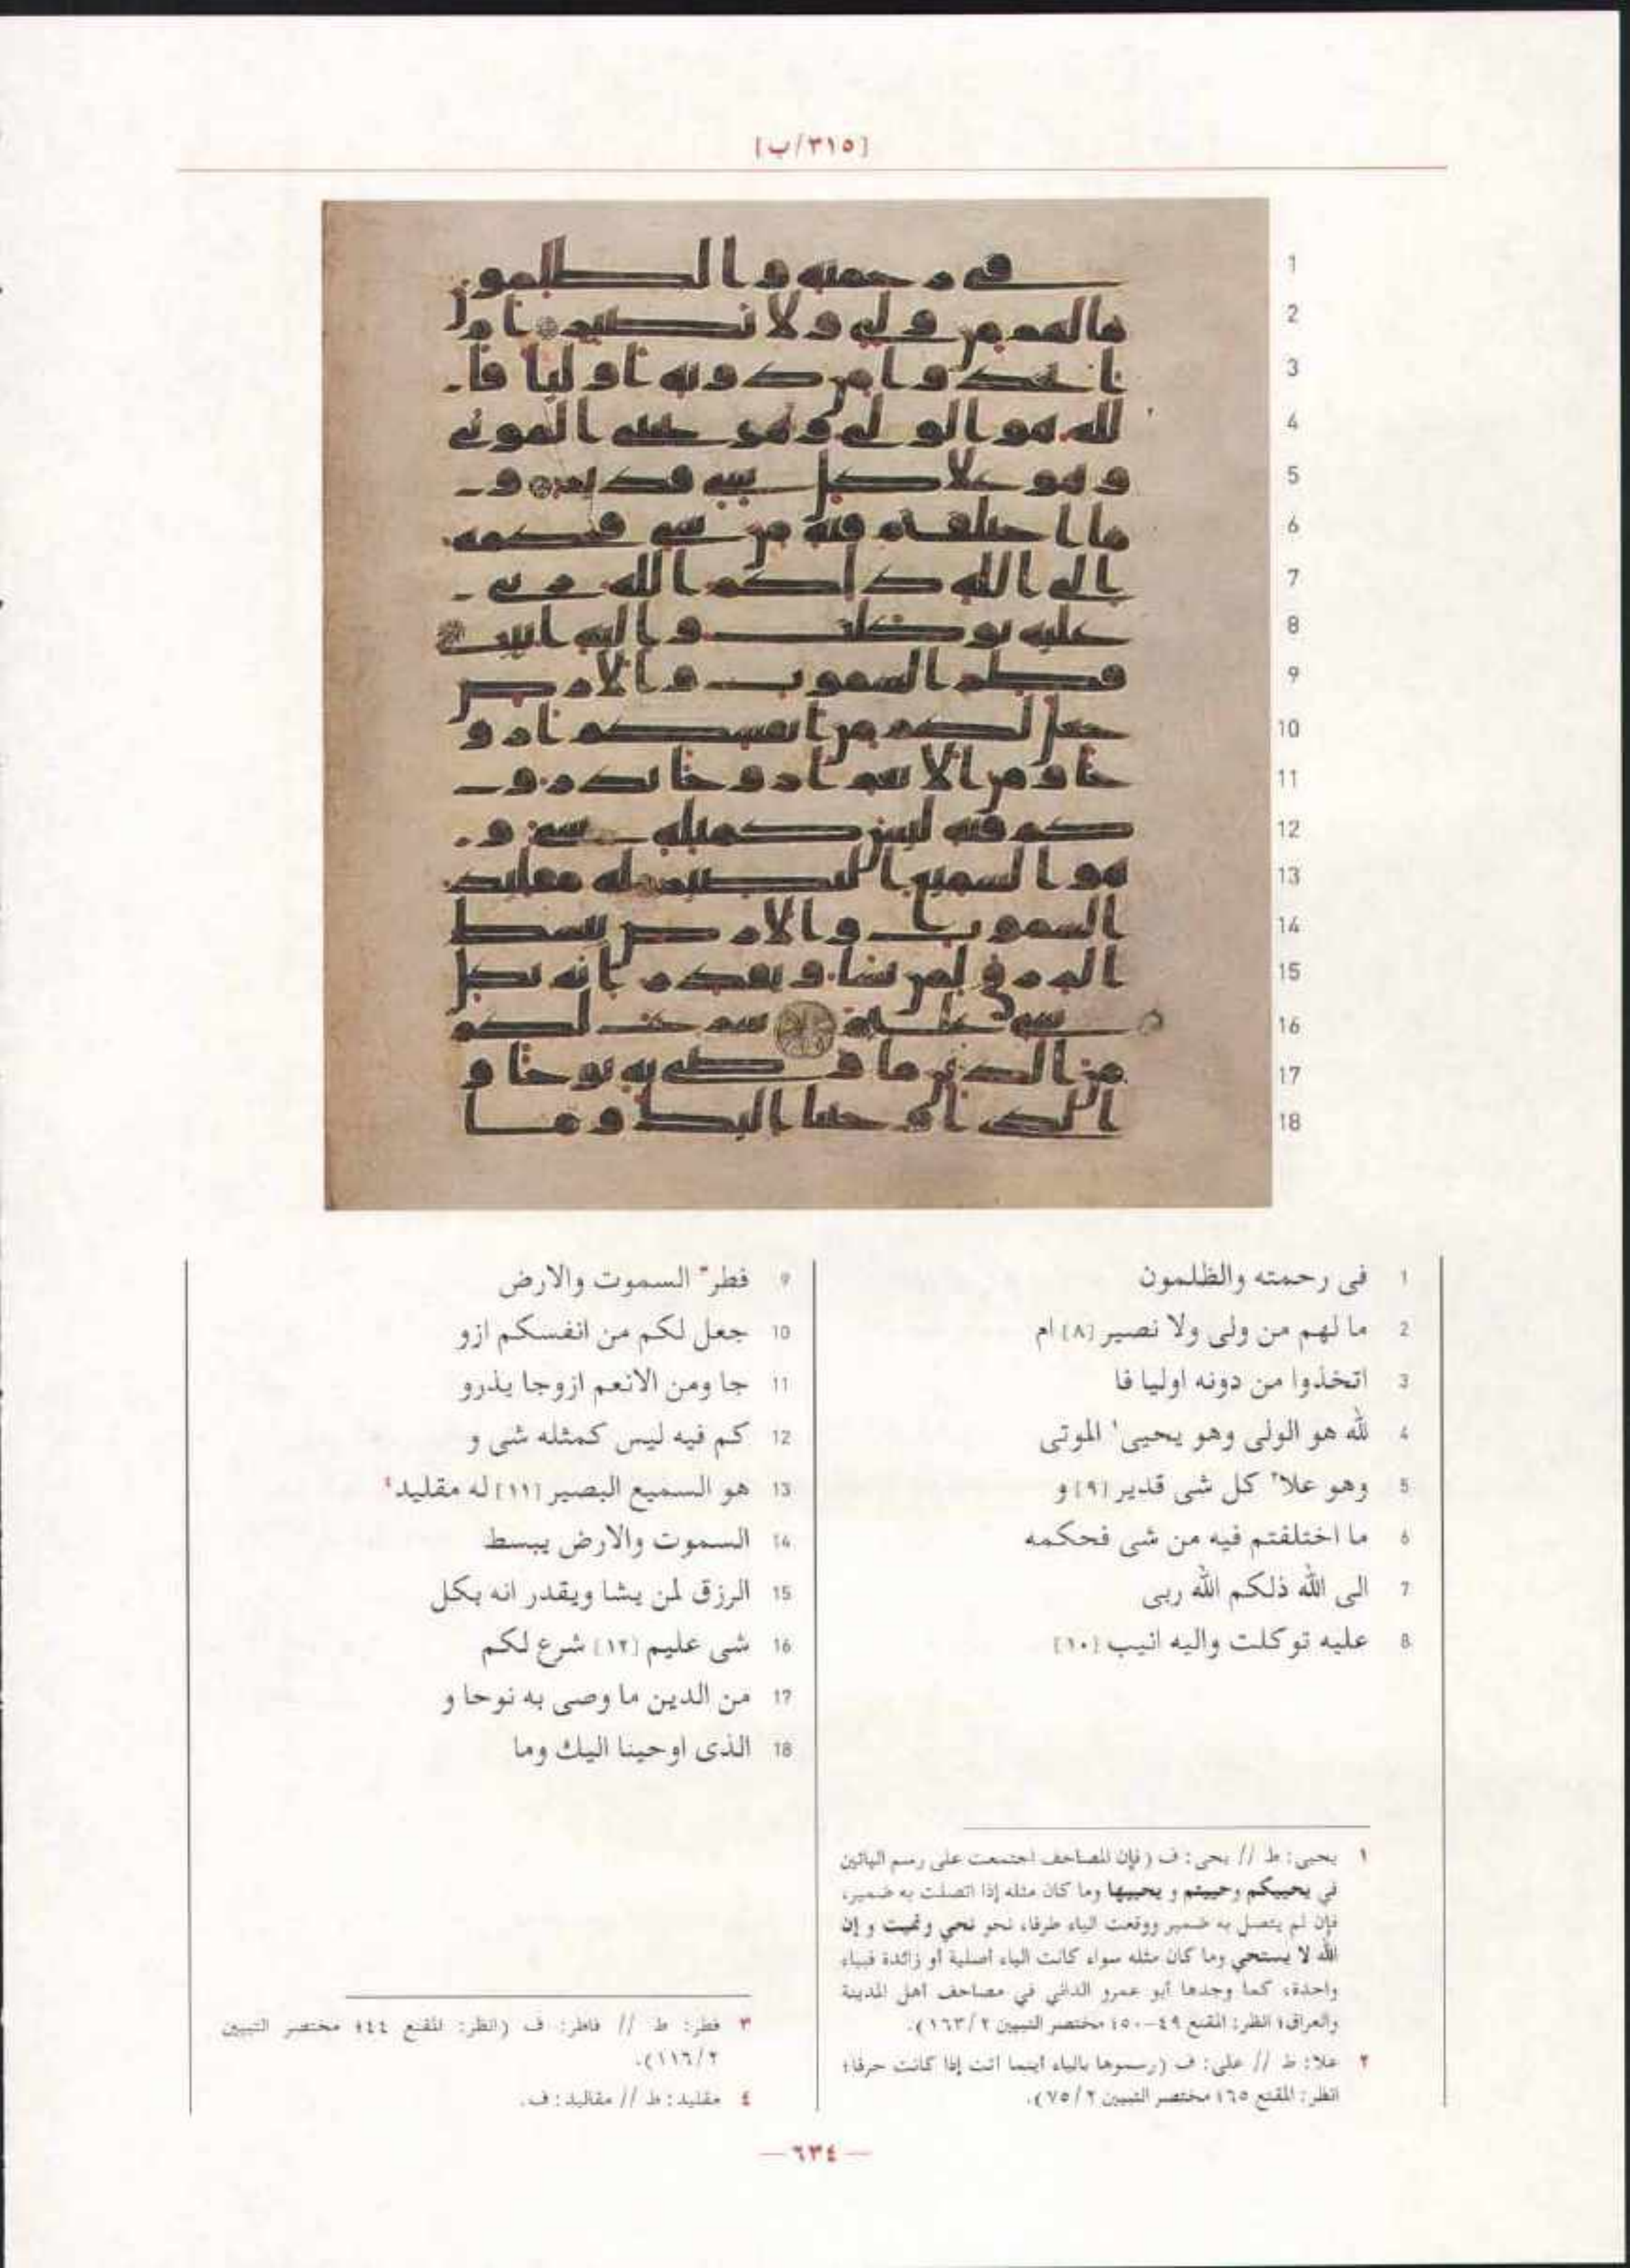 [٣١٥/ب]
1
2
3
4
5
6
7
8
9
10
11
12
13
14
15
16
17
18
1 فى رحمته والظلمون
2 ما لهم من ولى ولا نصير [٨] ام
3 اتخذوا من دونه اوليا فا
4 لله هو الولى وهو يحيى١ الموتى
5 وهو علا٢ كل شى قدير [٩] و
6 ما اختلفتم فيه من شى فحكمه
7 الى الله ذلكم الله ربى
8 عليه توكلت واليه انيب [١٠]
9 فطر٣ السموت والارض
10 جعل لكم من انفسكم ازو
11 جا ومن الانعم ازوجا يذرو
12 كم فيه ليس كمثله شى و
13 هو السميع البصير [١١] له مقليد٤
14 السموت والارض يبسط
15 الرزق لمن يشا ويقدر انه بكل
16 شى عليم [١٢] شرع لكم
17 من الدين ما وصى به نوحا و
18 الذى اوحينا اليك وما
١ يحيى: ط // يحى: ف (فإن المصاحف اجتمعت على رسم اليائين
في يحييكم وحييتم و يحييها وما كان مثله إذا اتصلت به ضمير،
فإن لم يتصل به ضمير ووقعت الياء طرفا، نحو نحي ونميت و إن
الله لا يستحي وما كان مثله سواء كانت الياء أصلية أو زائدة فبياء
واحدة، كما وجدها أبو عمرو الداني في مصاحف أهل المدينة
والعراق؛ انظر: المقنع ٤٩-٥٠؛ مختصر التبيين ٢/١٦٣).
٢ علا: ط // على: ف (رسموها بالياء أينما أتت إذا كانت حرفا؛
انظر: المقنع ٦٥؛ مختصر التبيين ٢/٧٥).
٣ فطر: ط // فاطر: ف (انظر: المقنع ٤٤؛ مختصر التبيين
٢/١١٦).
٤ مقليد: ط // مقاليد: ف.
— ٦٣٤ —